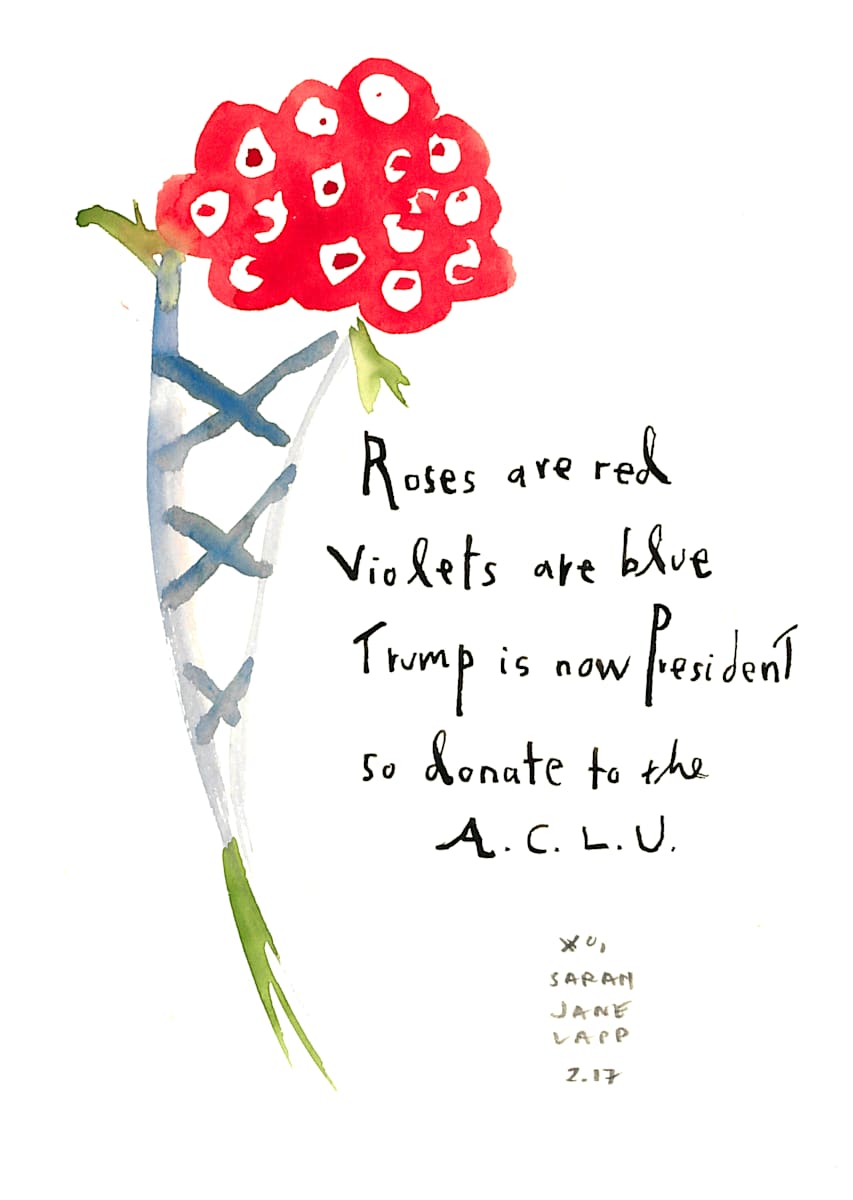 Roses are red
Violets are blue
Trump is now President
so donate to the
A.C.L.U.
XO,
SARAH
JANE
LAPP
2.17